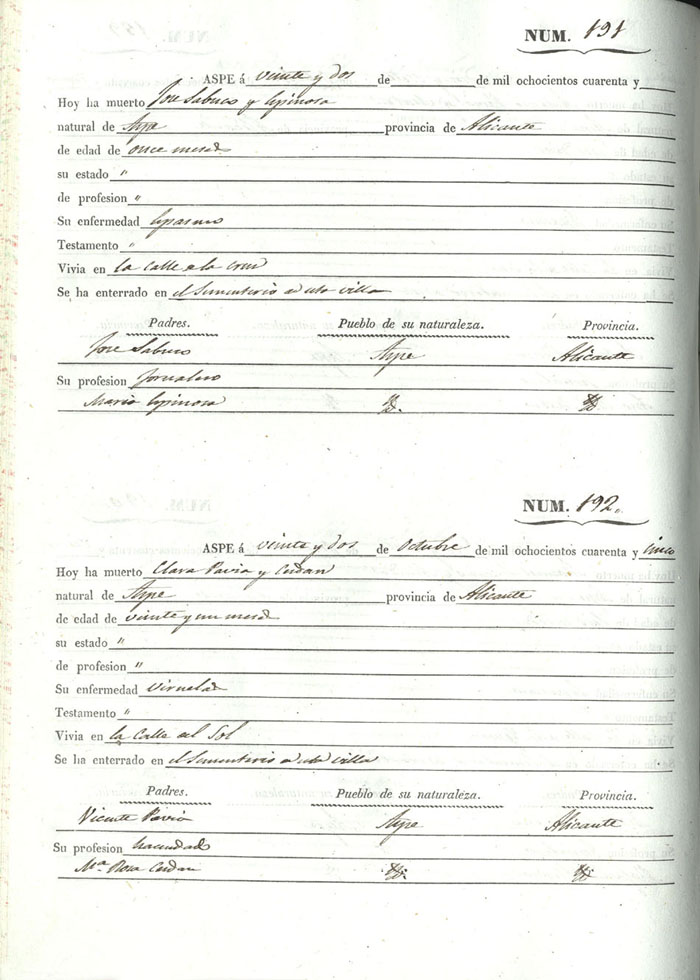 NUM. 191
ASPE á veinte y dos de de mil ochocientos cuarenta y
Hoy ha muerto Jose Sabuco y Espinosa
natural de Aspe provincia de Alicante
de edad de once meses
su estado "
de profesion "
Su enfermedad Espasmo
Testamento "
Vivia en la Calle de la Cruz
Se ha enterrado en el Sementerio de esta villa
Padres. Pueblo de su naturaleza. Provincia.
Jose Sabuco Aspe Alicante
Su profesion Jornalero
Maria Espinosa Yd. Yd.
NUM. 192.
ASPE á veinte y dos de Octubre de mil ochocientos cuarenta y cinco
Hoy ha muerto Clara Pavia y Cerdan
natural de Aspe provincia de Alicante
de edad de veinte y un meses
su estado "
de profesion "
Su enfermedad Viruelas
Testamento "
Vivia en la Calle del Sol
Se ha enterrado en el Sementerio de esta villa
Padres. Pueblo de su naturaleza. Provincia.
Vicente Pavia Aspe Alicante
Su profesion hacendado
Mª Rosa Cerdan Yd. Yd.